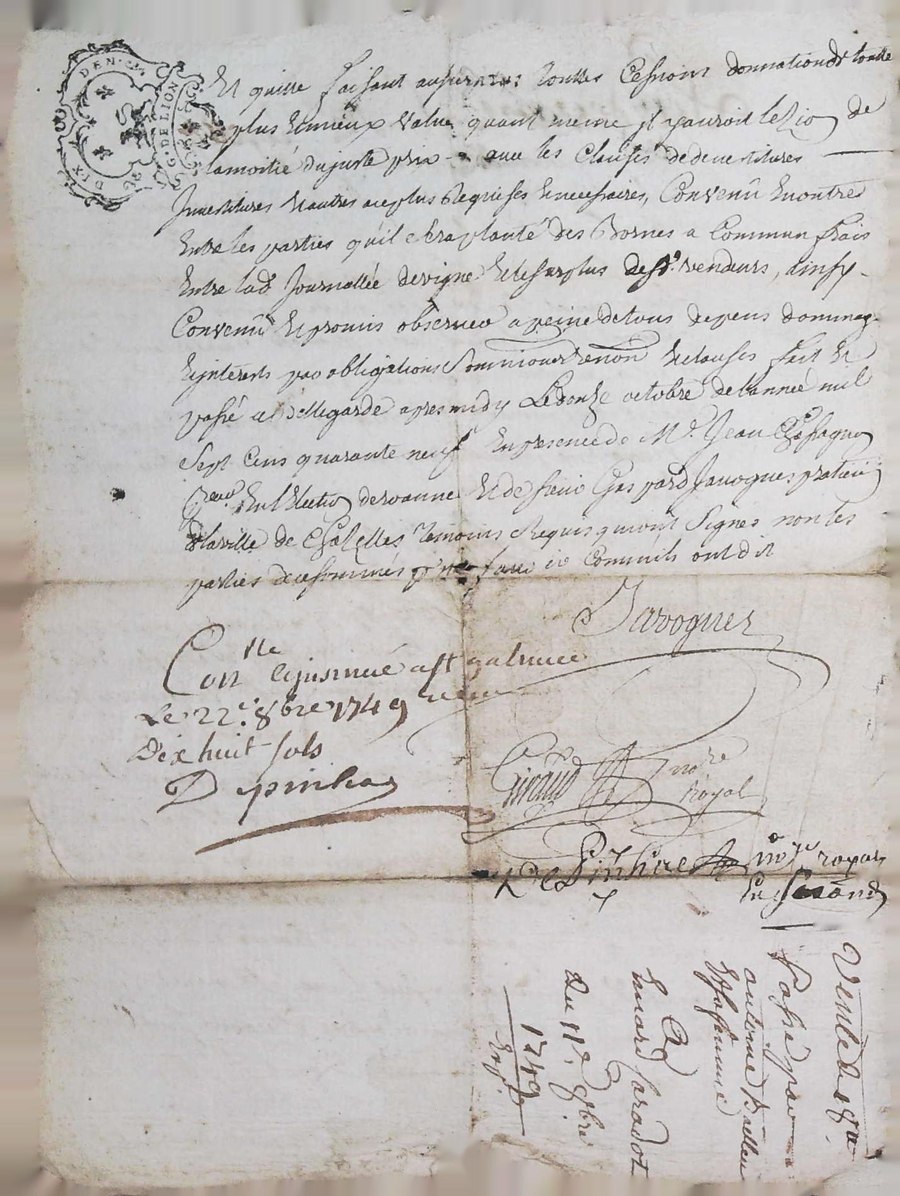 DIX DEN.
G. DE LION
Et quitte faisant toutes Cessions donnation de toutte
plus Et mieux Value quant meme il y auroit lezion de
la moitié du juste prix avec les Clauses de devestitures
Investitures Et autres au plus Requises Et necessaires, Convenu En outre
Entre les parties quil sera planté des Bornes a Commun frais
Entre lad Journallée de vigne Et le surplus desd. vendeurs, ainsy
Convenu Et promis observer a peine de tous depens dommag.
Et jnterests par obligations Soumissions Renon Et clauses fait Et
passé a Bellegarde apres midy Le onze octobre de l'année mil
Sept Cens quarante neuf En presence de Mr. Jean
En lElection de roanne Et de sieur Gaspard Javogues praticien
de la ville de Chazelles temoins Requis qui ont Signes non les
parties de ce sommés Et ont dit
Javogues
Con.lle Et jnsinué a St galmier
Le 22e. 8bre 1749 recu
Dix huit sols
Depinhac
Giraud nore
Royal
nore royal
Vente de 18ll
Passé par
antoine
Et sa femme
A
du 11e. 8bre
1749
Exp.